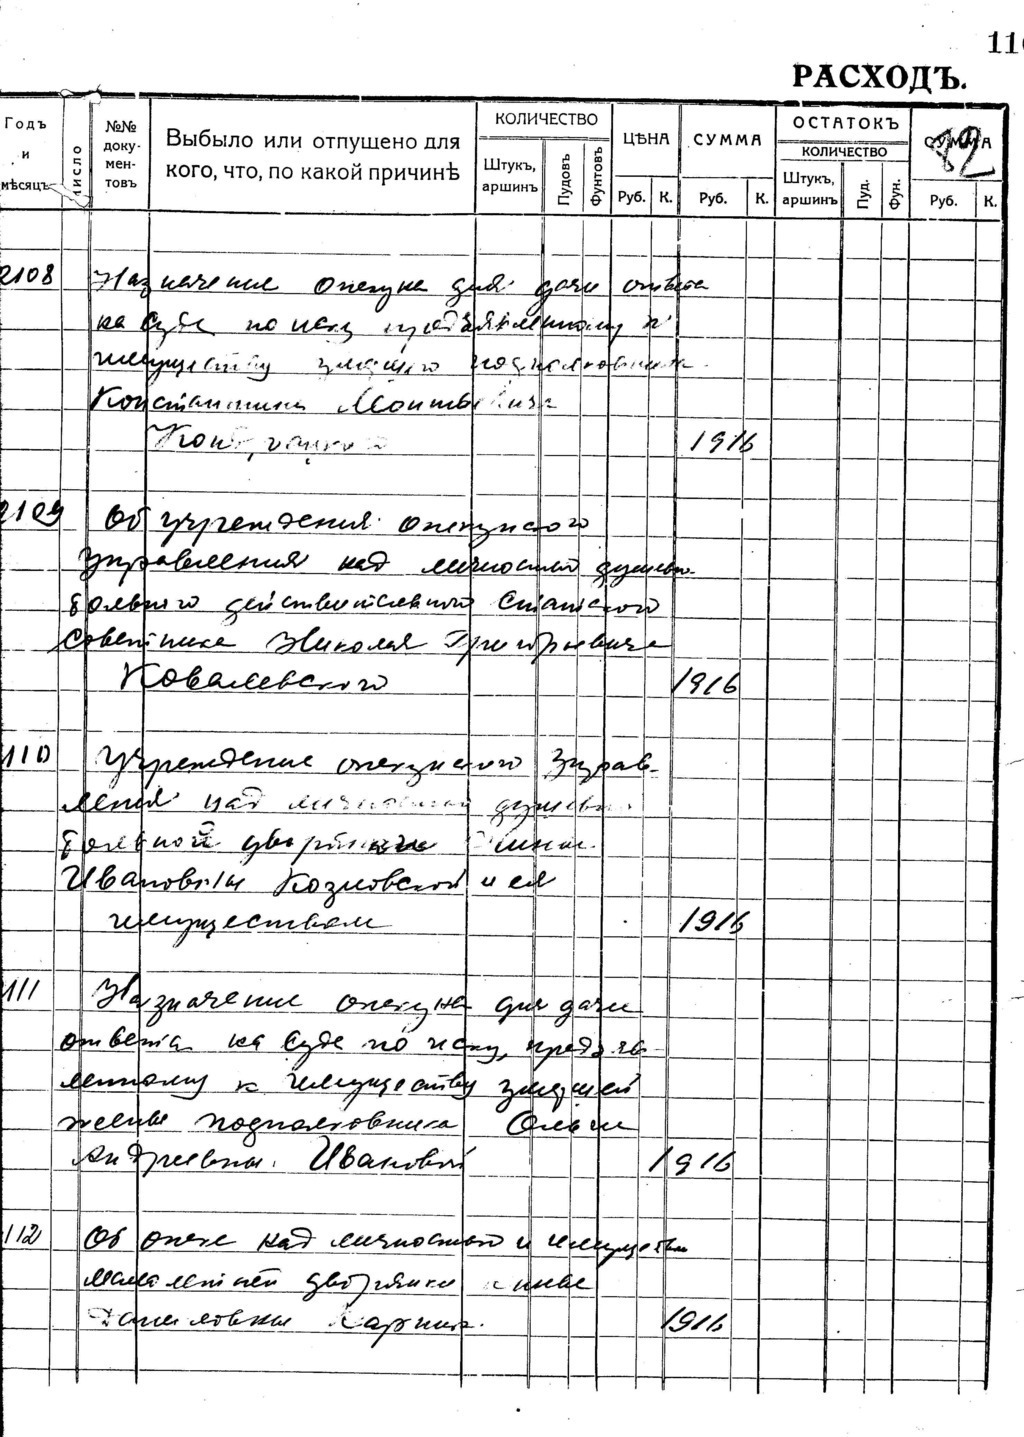 116
РАСХОДЪ.
Годъ и мѣсяцъ
Число
№№ доку-мен-товъ
Выбыло или отпущено для
кого, что, по какой причинѣ
КОЛИЧЕСТВО
Штукъ, аршинъ
Пудовъ
Фунтовъ
ЦѢНА
Руб. К.
СУММА
Руб. К.
ОСТАТОКЪ
КОЛИЧЕСТВО
Штукъ, аршинъ
Пуд.
Фун.
СУММА
82
Руб. К.
2108 Назначение опекуна для дачи ответа
на суде по иску предъявленному к
имуществу умершего подполковника
Константина
1916
2109 Об учреждении опекунского
управления над личностью душевно-
больного действительного Статского
Советника Николая Григорьевича
Ковалевского 1916
110 Учреждение опекунского Управ-
ления над личностью душевно
больной дворянки
Ивановны Козловской и ея
имуществом 1916
111 Назначение опекуна для дачи
ответа на суде по иску, предъяв-
ленному к имуществу умершей
жены подполковника Ольги
Андреевны Ивановой 1916
112 Об опеке над личностью и имуществом
малолетней дворянки
Даниловны 1916